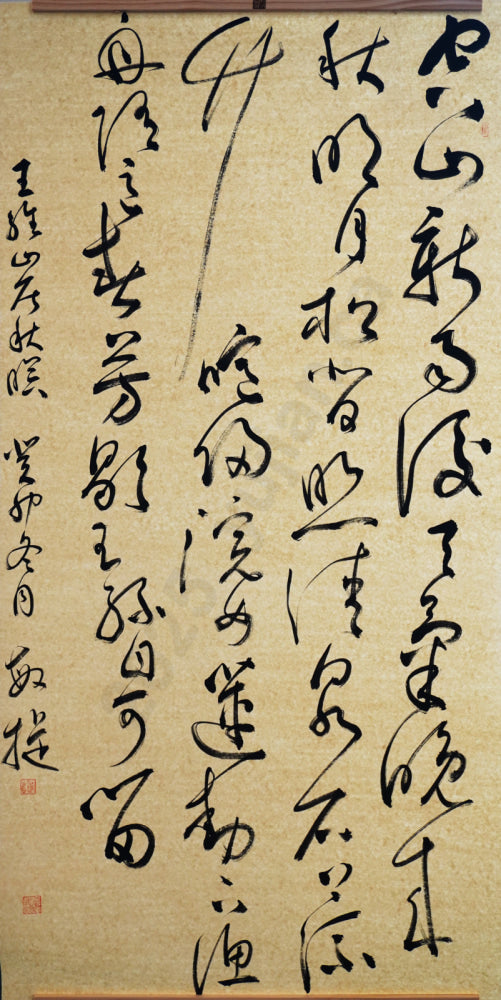 空山新雨後天氣晚來
秋明月松間照清泉石上流
竹喧歸浣女蓮動下漁
舟隨意春芳歇王孫自可留
王維山居秋暝 癸卯冬月 敏